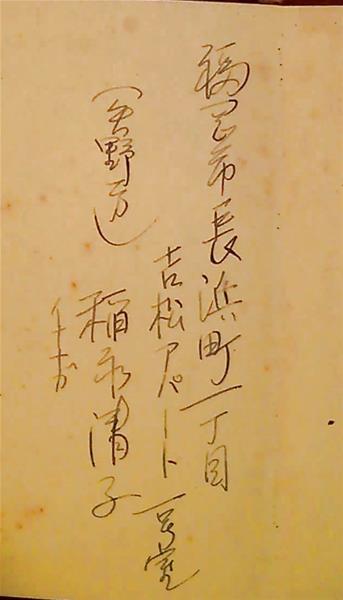 福岡市長浜町一丁目
吉松アパート一号室
(矢野方)
稲永清子